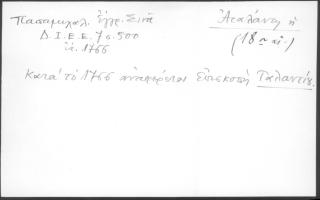 Παπαμιχαλ. Ἔγγρ. Σινᾶ
Δ.Ι.Ε.Ε. 7ος. 500
ἔ.α. 1766
Ἀταλάντη ἡ
(18ος αἰ.)
Κατὰ τὸ 1766 ἀναφέρεται Ἐπισκοπὴ Ταλαντίου.